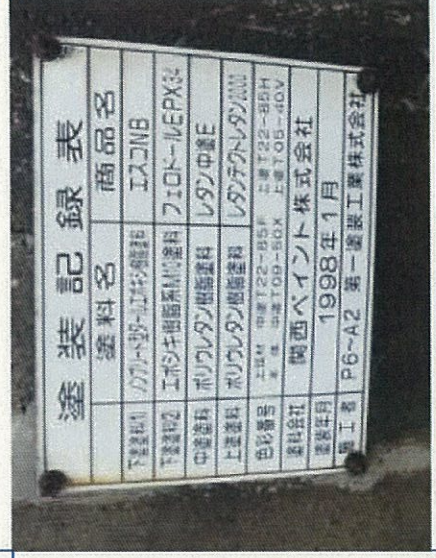 塗装記録表
塗料名 商品名
下塗塗料1 ノンブリード型タールエポキシ樹脂塗料 エスコNB
下塗塗料2 エポシキ樹脂系MIO塗料 フェロドールEPX34
中塗塗料 ポリウレタン樹脂塗料 レタン中塗E
上塗塗料 ポリウレタン樹脂塗料 レタンテクトレタン2000
色彩番号 中塗T22-85F 上塗T22-85H
中塗T09-50X 上塗T05-40V
塗料会社 関西ペイント株式会社
塗装年月 1998年1月
施工者 P6~A2 第一塗装工業株式会社